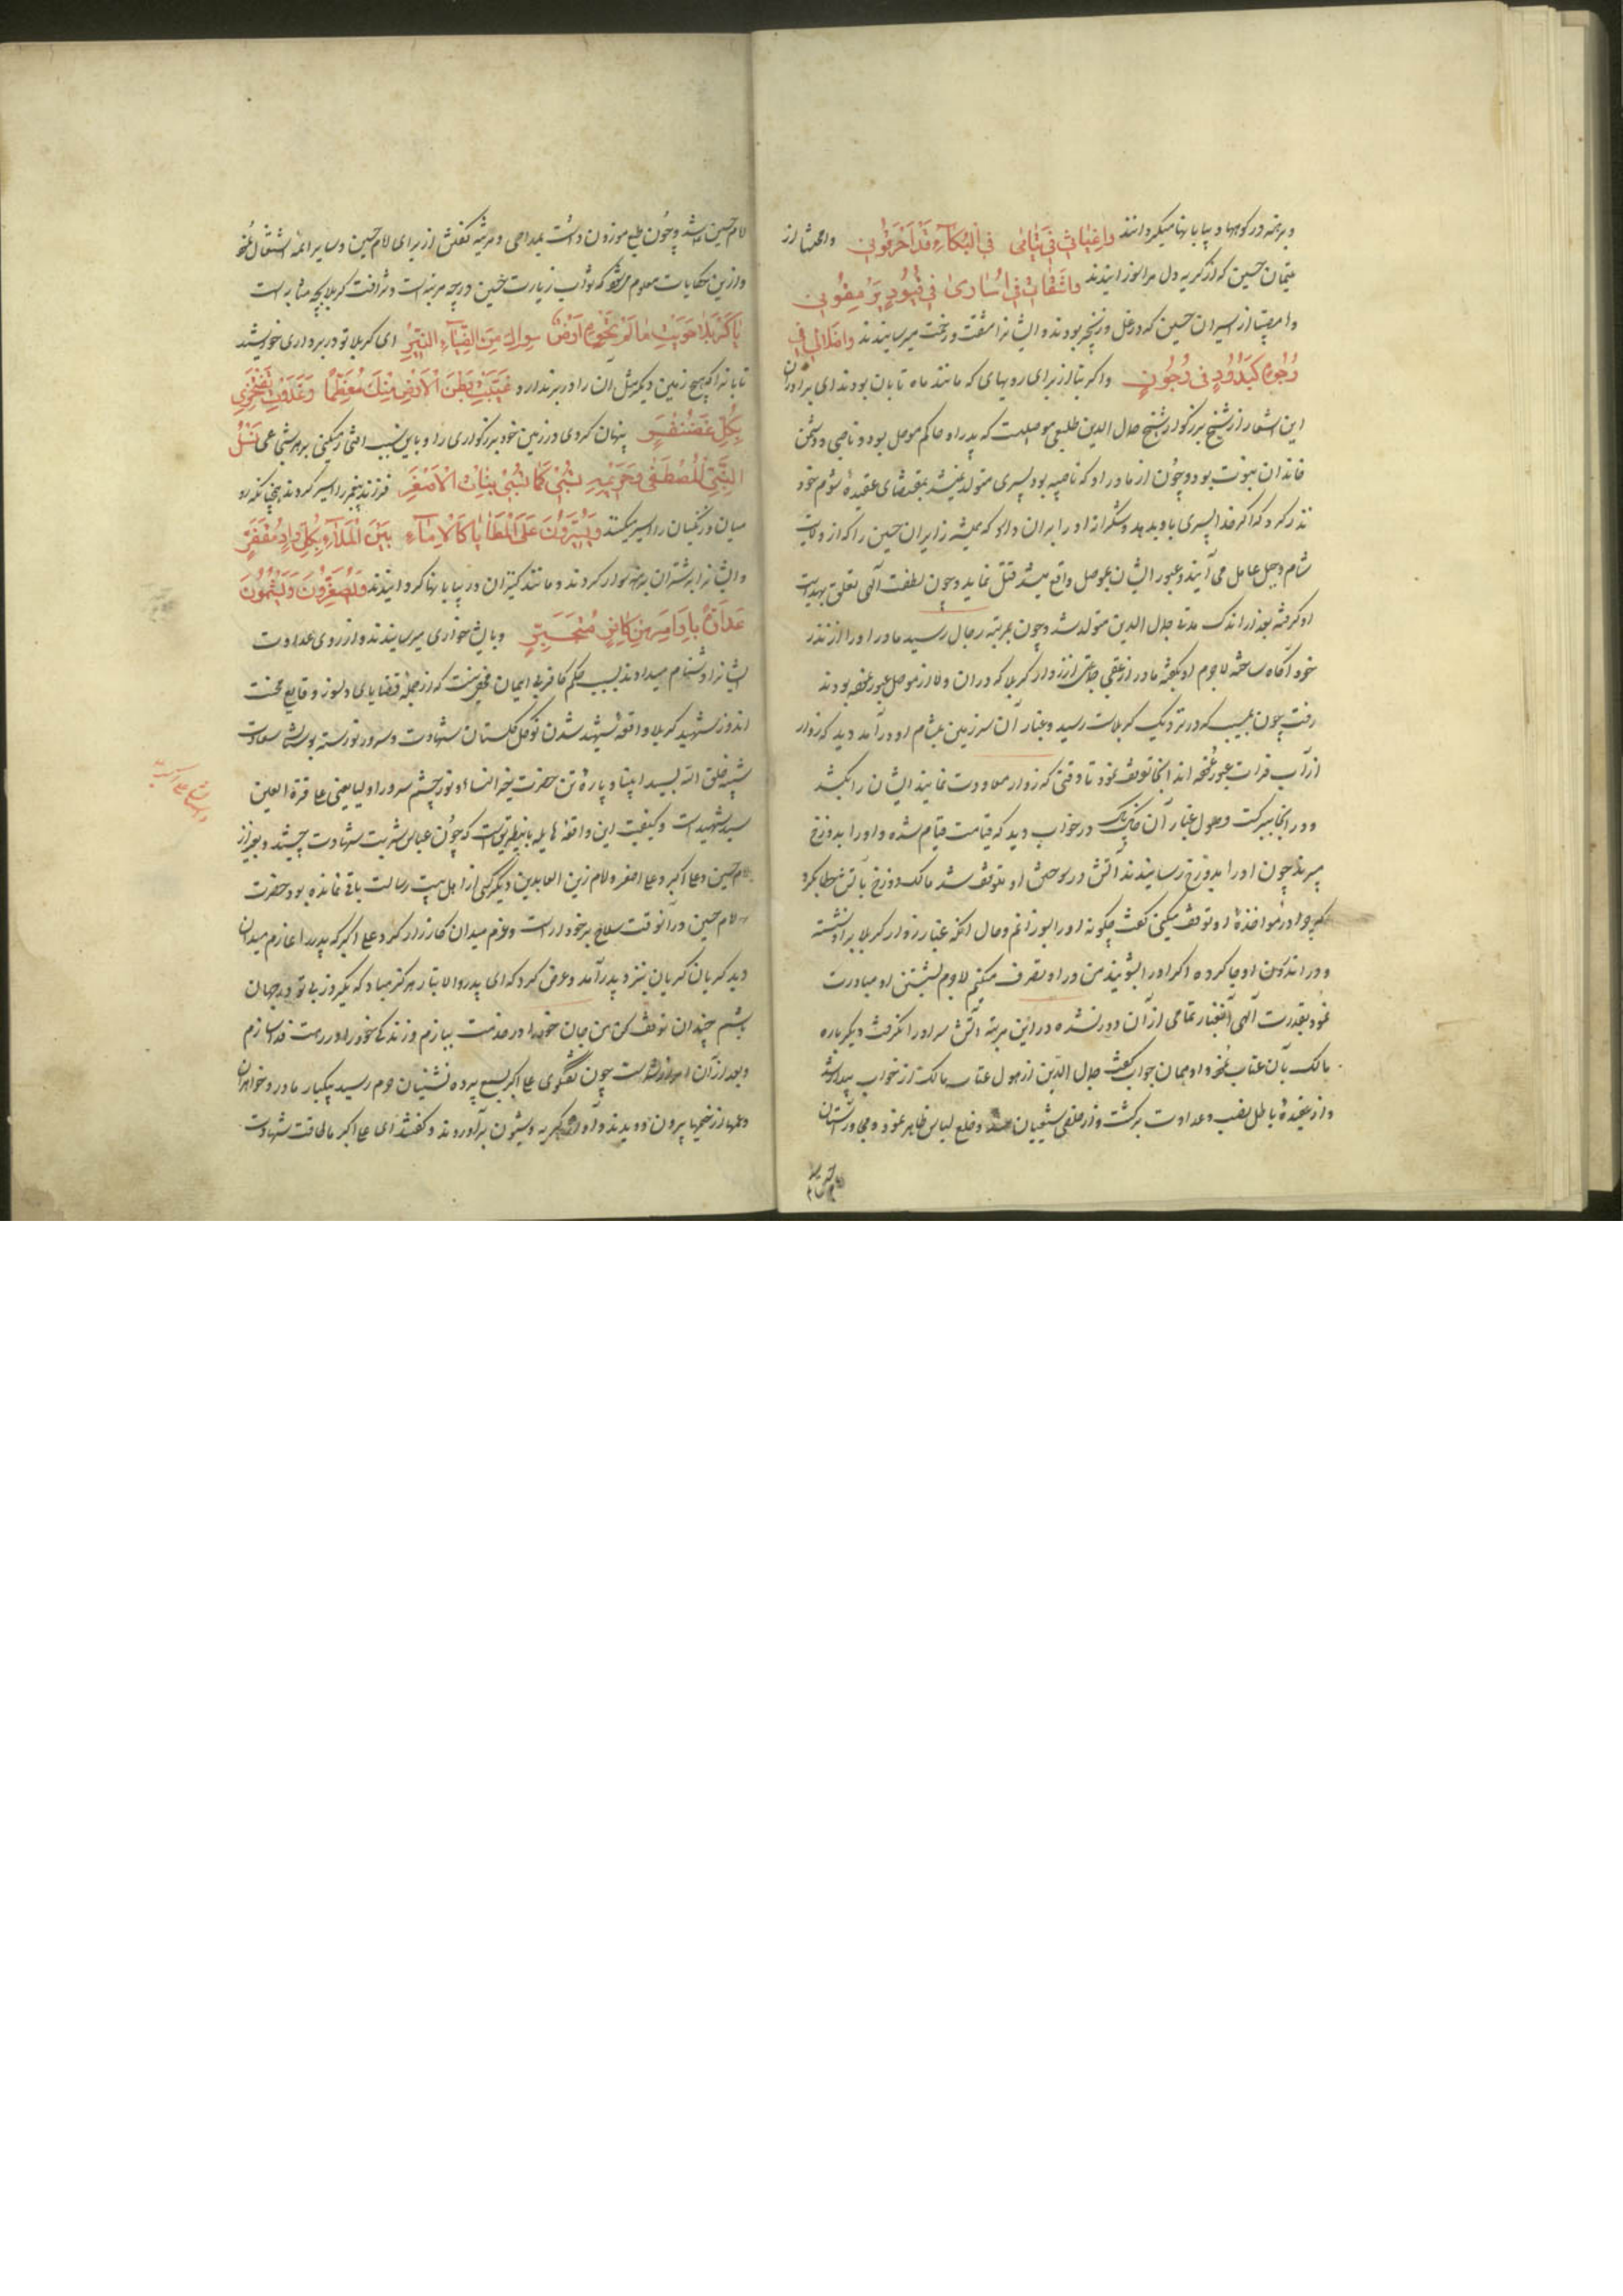 و برهنه در کوهها و بیابانها میگردانند واغیاثی فی یتامی فی البکاء قد احرقونی واغوثا از
یتیمان حسین که از گریه دل مرا سوزانیدند واثقاتی فی اساری فی قیود
وامصیبتا از اسیران حسین که در غل و زنجیر بودند و ایشانرا مشقت و زحمت میرسانیدند
وجوه کبدور فی دجون واکربتا از برای رویهای که مانند ماه تابان بودند ای برادران
این اشعار از شیخ بزرگوار شیخ جلال الدین خلیعی موصلیست که پدر او حاکم موصل بود و ناصبی و دشمن
خاندان نبوت بود و چون از مادر او که ناصبیه بود پسری متولد نمیشد بمقتضای عقیدهٔ شوم خود
نذر کرد که اگر خدا پسری باو بدهد بشکرانه او را بر آن دارد که همیشه زایران حسین را که از ولایت
شام و جبل عامل می آیند و عبور ایشان بموصل واقع میشد قتل نماید و چون لطف الهی تعلق بهدایت
او گرفته بعد از اندک مدتی جلال الدین متولد شد و چون بمرتبه رجال رسید مادر او را از نذر
خود آگاه ساخته لاجرم او بگفته مادر از عقب جماعتی از زوار کربلا که در آن ولا از موصل عبور نموده بودند
رفت چون بمسیب که در نزدیک کربلاست رسید و غبار آن سرزمین بمشام او درآمد دید که زوار
از آب فرات عبور نموده اند آنجا توقف نمود تا وقتی که زوار معاودت نمایند ایشان را بکشد
و در آنجا ببرکت وصول غبار آن خاک پاک در خواب دید که قیامت قیام شده و او را بدوزخ
میبرند چون او را بدوزخ رسانیدند آتش در سوختن او متوقف شد مالک دوزخ بآتش خطاب کرد
که چرا در مواخذهٔ او توقف میکنی گفت چگونه او را بسوزانم و حال آنکه غبار زوار کربلا بر او نشسته
و در اندرون او جا کرده اگر او را بشویند من در او تصرف میکنم لاجرم بشستن او مبادرت
نمود بقدرت الهی آن غبار تمامی از آن دور نشده در این مرتبه آتش سر او را نگرفت دیگرباره
مالک بآن عتاب نمود او همان جواب گفت جلال الدین از هول عتاب مالک از خواب بیدار شد
و از عقیدهٔ باطل نصب و عداوت برگشت و از خلص شیعیان شد و خلع لباس ظاهر نموده مجاور آستان
امام حسین شد و چون طبع موزون داشت بمداحی و مرثیه گفتن از برای امام حسین و سایر ائمه اشتغال نمود
و ازین حکایات معلوم میشود که ثواب زیارت حسین در چه مرتبه است و شرافت کربلا بچه مثابه است
یا کربلا حویت ما لم تحوه ارض سواک من الضیاء النیر ای کربلا تو در بر داری خورشید
تابانرا که هیچ زمین دیگر مثل آن را در بر ندارد غیبت بطن الارض منک معظما وغدوت تفتخری
بکل غضنفر پنهان کردی در زمین خود بزرگواری را و باین سبب افتخار میکنی بر هر شجاعی نسل
النبی المصطفی وحریمه تسبی کما تسبی بنات الاصفر فرزند پیغمبر را اسیر کردند چنانکه در
میان فرنگیان را اسیر میکنند ویسیرون علی المطایا کالاماء بین الملاء بکل واد مقفر
و ایشانرا بر شتران برهنه سوار کردند و مانند کنیزان در بیابانها گردانیدند
و بایشان خواری میرسانیدند و از روی عداوت
ایشانرا دشنام میدادند بسبب حکم کافر بی ایمان مخفی نیست که از جمله قضایای دلسوز و وقایع محنت
اندوز شهید کربلا واقعه شهید شدن نوگل گلستان شهادت و سرو نورسته بوستان سعادت
شبیه خلق الله بسید انبیاء و پاره تن حضرت خیر النساء و نور چشم سرور اولیا یعنی علی قرة العین
سید شهیدانست و کیفیت این واقعه هایله باینطریق است که چون عباس شربت شهادت چشید و بغیر از
امام حسین و علی اکبر و علی اصغر و امام زین العابدین دیگر کسی از اهل بیت رسالت باقی نمانده بود حضرت
امام حسین در آنوقت سلاح بر خود آراست و عزم میدان کارزار کرد و علی اکبر که پدر را عازم میدان
دید گریان گریان بنزد پدر آمد و عرض کرد که ای پدر والاتبار هرگز مباد که یکروز بی تو در جهان
باشم چندان توقف کن من جان خود را در خدمت ببازم و زندگی خود را در رهت فدا سازم
و بعد از آن چون گفتگوی علی اکبر بسمع پرده نشینان حرم رسید بیکبار مادر و خواهران
و عمها از خیمها بیرون دویدند و آواز گریه و شیون برآوردند و گفتند ای علی اکبر ما طاقت شهادت